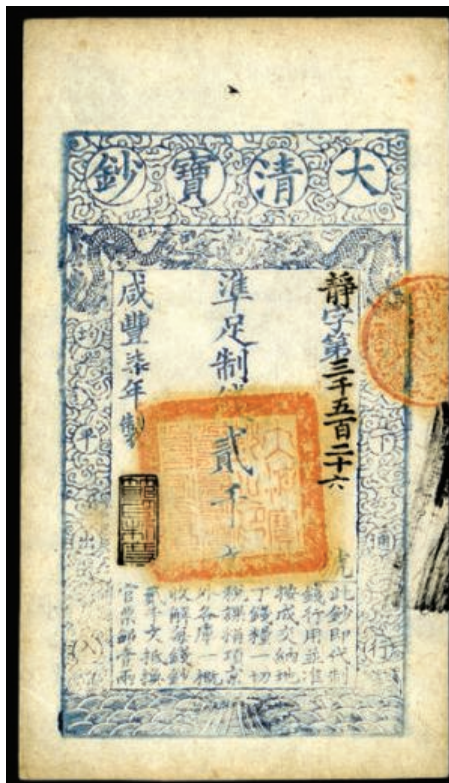 大清寶鈔
靜字第三千五百二十六
準足制錢貳千文
咸豐柒年製
下通行
均平出入
此鈔即代制
錢行用並准
按成交納地
丁錢糧一切
稅課捐項京
外各庫一概
收解每錢鈔
貳千文抵換
官票銀壹兩